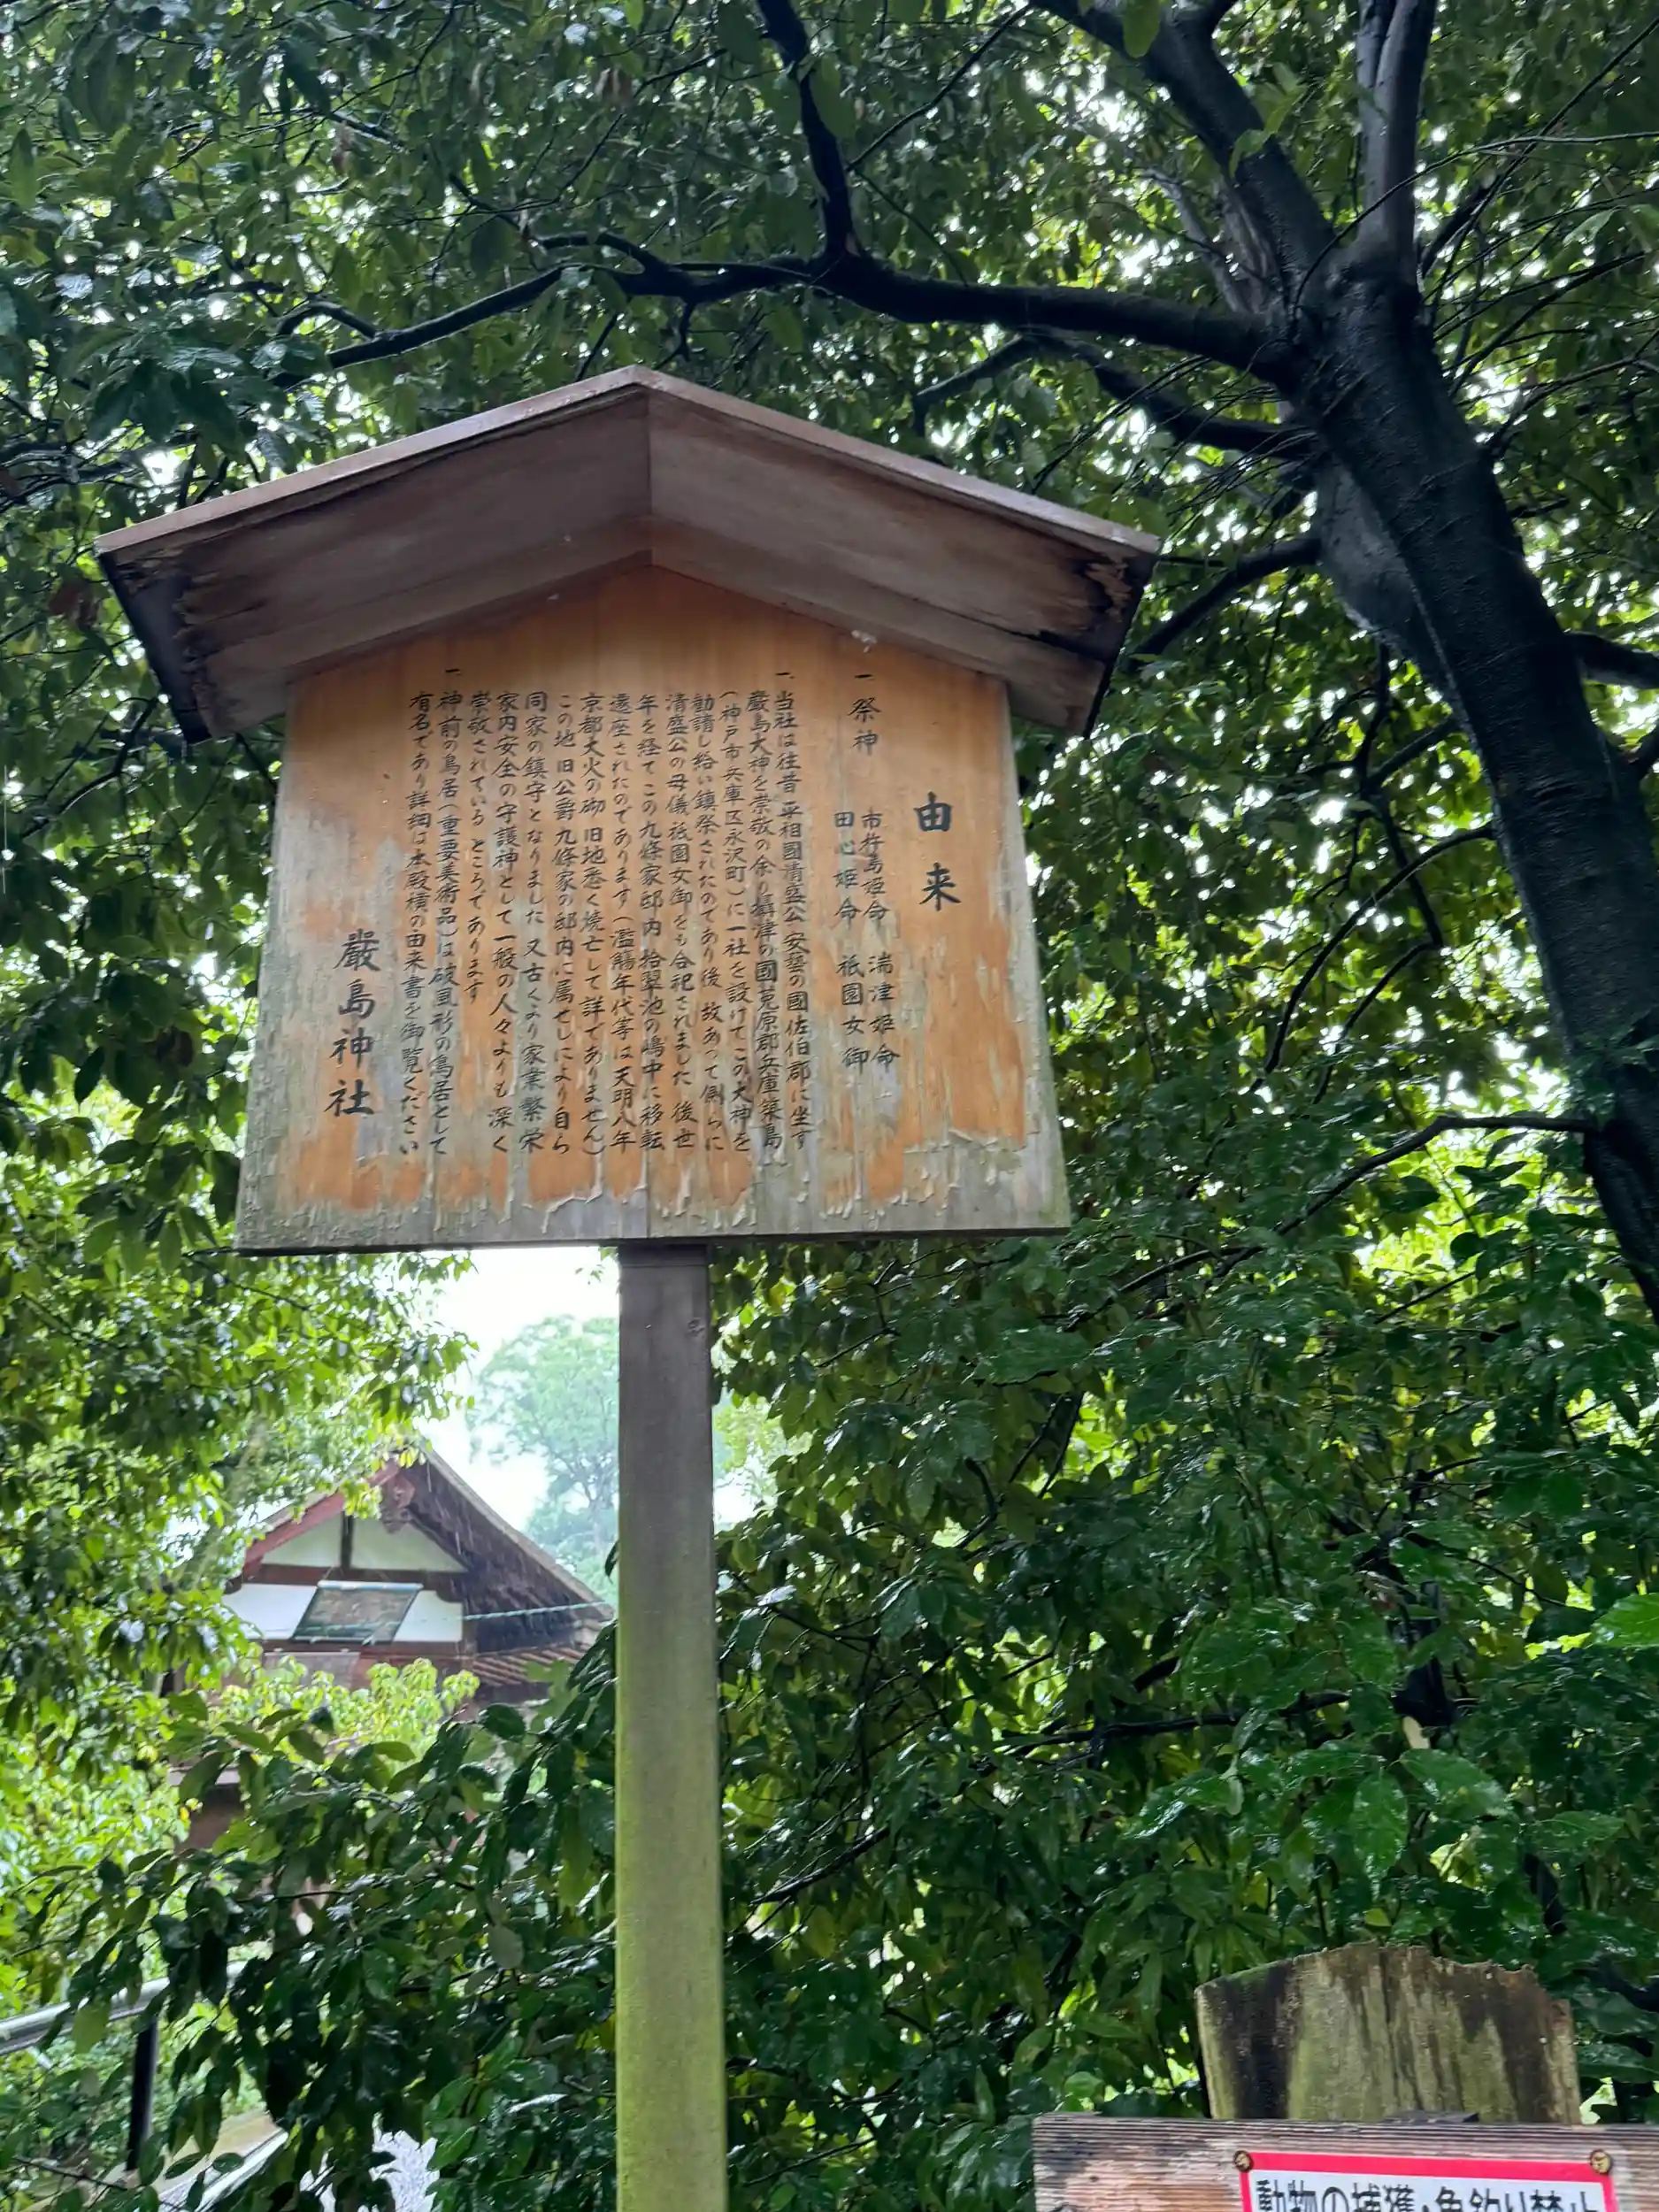 由来
一 祭神
市杵島姫命 湍津姫命
田心姫命 祇園女御
一 当社は往昔 平相國清盛公 安藝の國佐伯郡に坐す
嚴島大神を崇敬の余り 攝津の國菟原郡兵庫築島
(神戸市兵庫区永沢町)に一社を設けてこの大神を
勧請し給い鎮祭されたのであり後 故あって側らに
清盛公の母儀祇園女御をも合祀されました 後世
年を経てこの九條家邸内 拾翠池の嶋中に移転
遷座されたのであります(濫觴年代等は天明八年
京都大火の砌 旧地悉く焼亡して詳でありません)
この地 旧公爵九條家の邸内に属せしにより自ら
同家の鎮守となりました 又古くより家業繁栄
家内安全の守護神として一般の人々よりも深く
崇敬されている ところであります
一 神前の鳥居(重要美術品)は破風形の鳥居として
有名であり詳細は本殿横の由来書を御覧ください
嚴島神社
動物の捕獲・魚釣り禁止